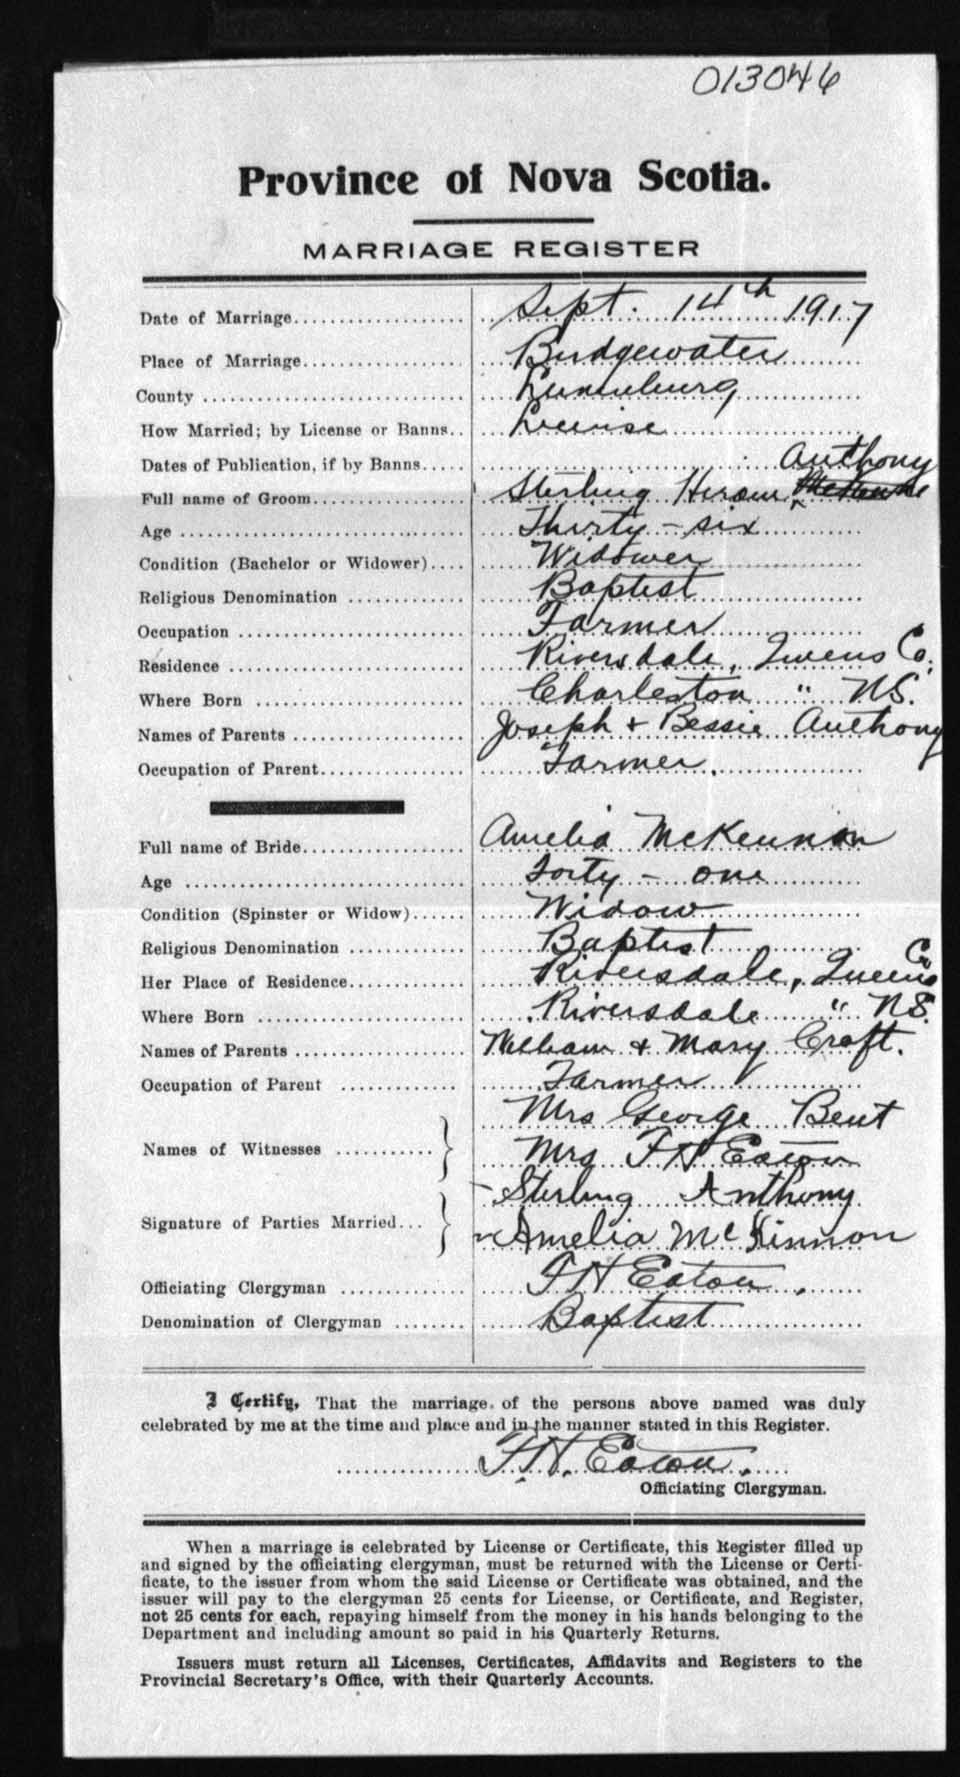 013046
Province of Nova Scotia.
MARRIAGE REGISTER
Date of Marriage Sept. 14th 1917
Place of Marriage Bridgewater
County Lunenburg
How Married; by License or Banns License
Dates of Publication, if by Banns
Anthony
Full name of Groom Sterling Hiram McKennon
Age Thirty-six
Condition (Bachelor or Widower) Widower
Religious Denomination Baptist
Occupation Farmer
Residence Riversdale, Queens Co.
Where Born Charleston " N.S.
Names of Parents Joseph + Bessie Anthony
Occupation of Parent Farmer.
Full name of Bride Amelia McKennon
Age Forty-one
Condition (Spinster or Widow) Widow
Religious Denomination Baptist
Her Place of Residence Riversdale, Queens Co
Where Born Riversdale " N.S.
Names of Parents William + Mary Croft.
Occupation of Parent Farmer
Names of Witnesses Mrs George Bent
Mrs F H Eaton
Signature of Parties Married Sterling Anthony
Amelia McKinnon
Officiating Clergyman F H Eaton.
Denomination of Clergyman Baptist
I Certify, That the marriage of the persons above named was duly
celebrated by me at the time and place and in the manner stated in this Register.
F.H. Eaton.
Officiating Clergyman.
When a marriage is celebrated by License or Certificate, this Register filled up
and signed by the officiating clergyman, must be returned with the License or Certi-
ficate, to the issuer from whom the said License or Certificate was obtained, and the
issuer will pay to the clergyman 25 cents for License, or Certificate, and Register,
not 25 cents for each, repaying himself from the money in his hands belonging to the
Department and including amount so paid in his Quarterly Returns.
Issuers must return all Licenses, Certificates, Affidavits and Registers to the
Provincial Secretary's Office, with their Quarterly Accounts.